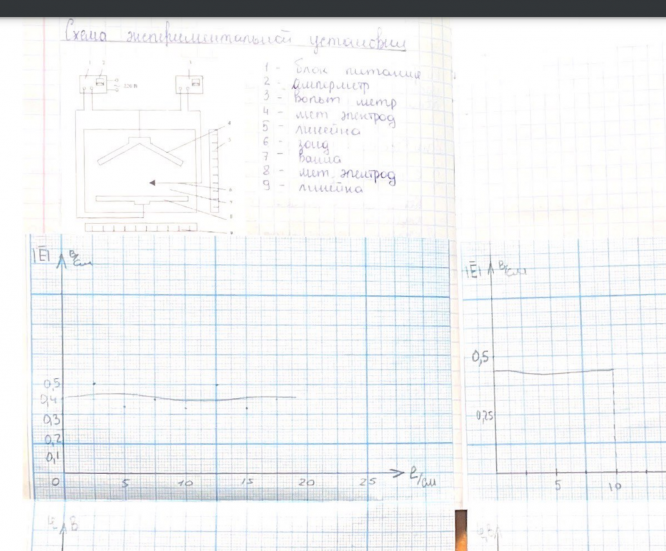 Схема экспериментальной установки
1 - блок питания
2 - амперметр
3 - вольтметр
4 - мет. электрод
5 - линейка
6 - зонд
7 - ванна
8 - мет. электрод
9 - линейка
|E| В/см
0,5
0,4
0,3
0,2
0,1
0 5 10 15 20 25 l/см
|E| В/см
0,5
0,25
5 10
φ, В